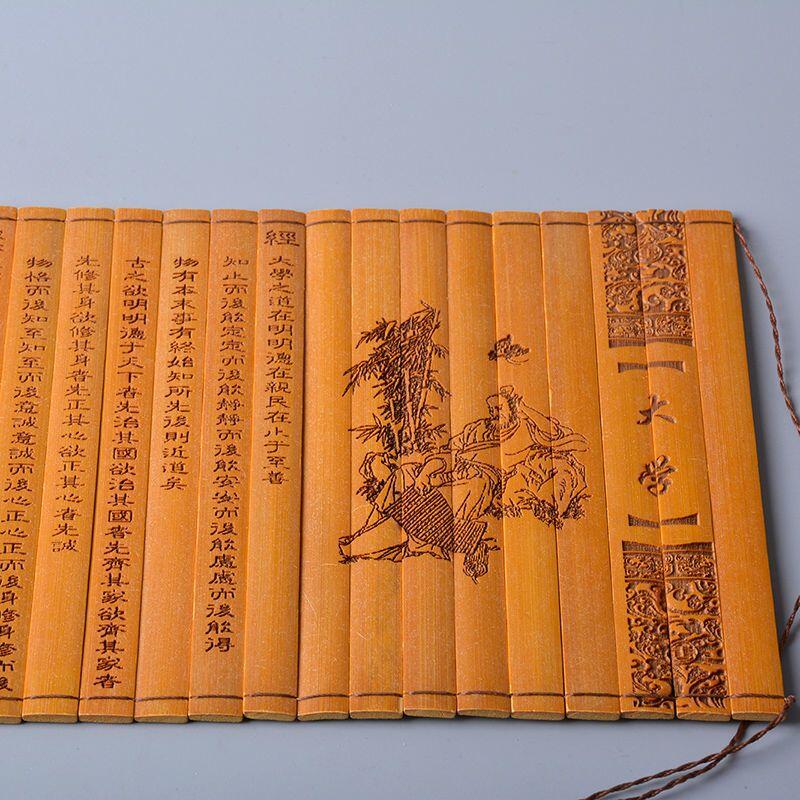 大学
經 大學之道在明明德在親民在止于至善
知止而後能定定而後能靜靜而後能安安而後能慮慮而後能得
物有本末事有終始知所先後則近道矣
古之欲明明德于天下者先治其國欲治其國者先齊其家欲齊其家者
先修其身欲修其身者先正其心欲正其心者先誠
物格而後知至知至而後意誠意誠而後心正心正而後身修身修而後